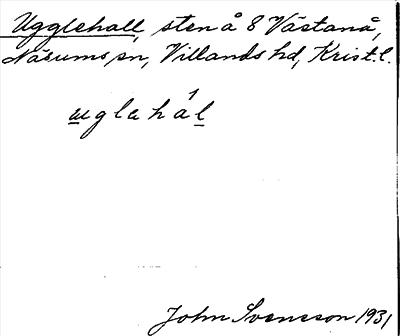 Ugglehall, sten å 8 Västanå,
Näsums sn, Villands hd, Krist. l.
uglahál
John Svensson 1931